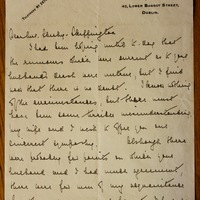 43, LOWER BAGGOT STREET,
DUBLIN.
Dear Mrs. Sheehy-Skeffington
I had been hoping until to-day that
the rumours there are current as to your
husband's death are untrue, but I find
now that there is no doubt. I know nothing
of the circumstances, but there must
have been some terrible misunderstanding
my wife and I wish to offer you our
sincerest sympathy. Although there
are probably few points on which your
husband and I had much agreement
there are few men of my acquaintance